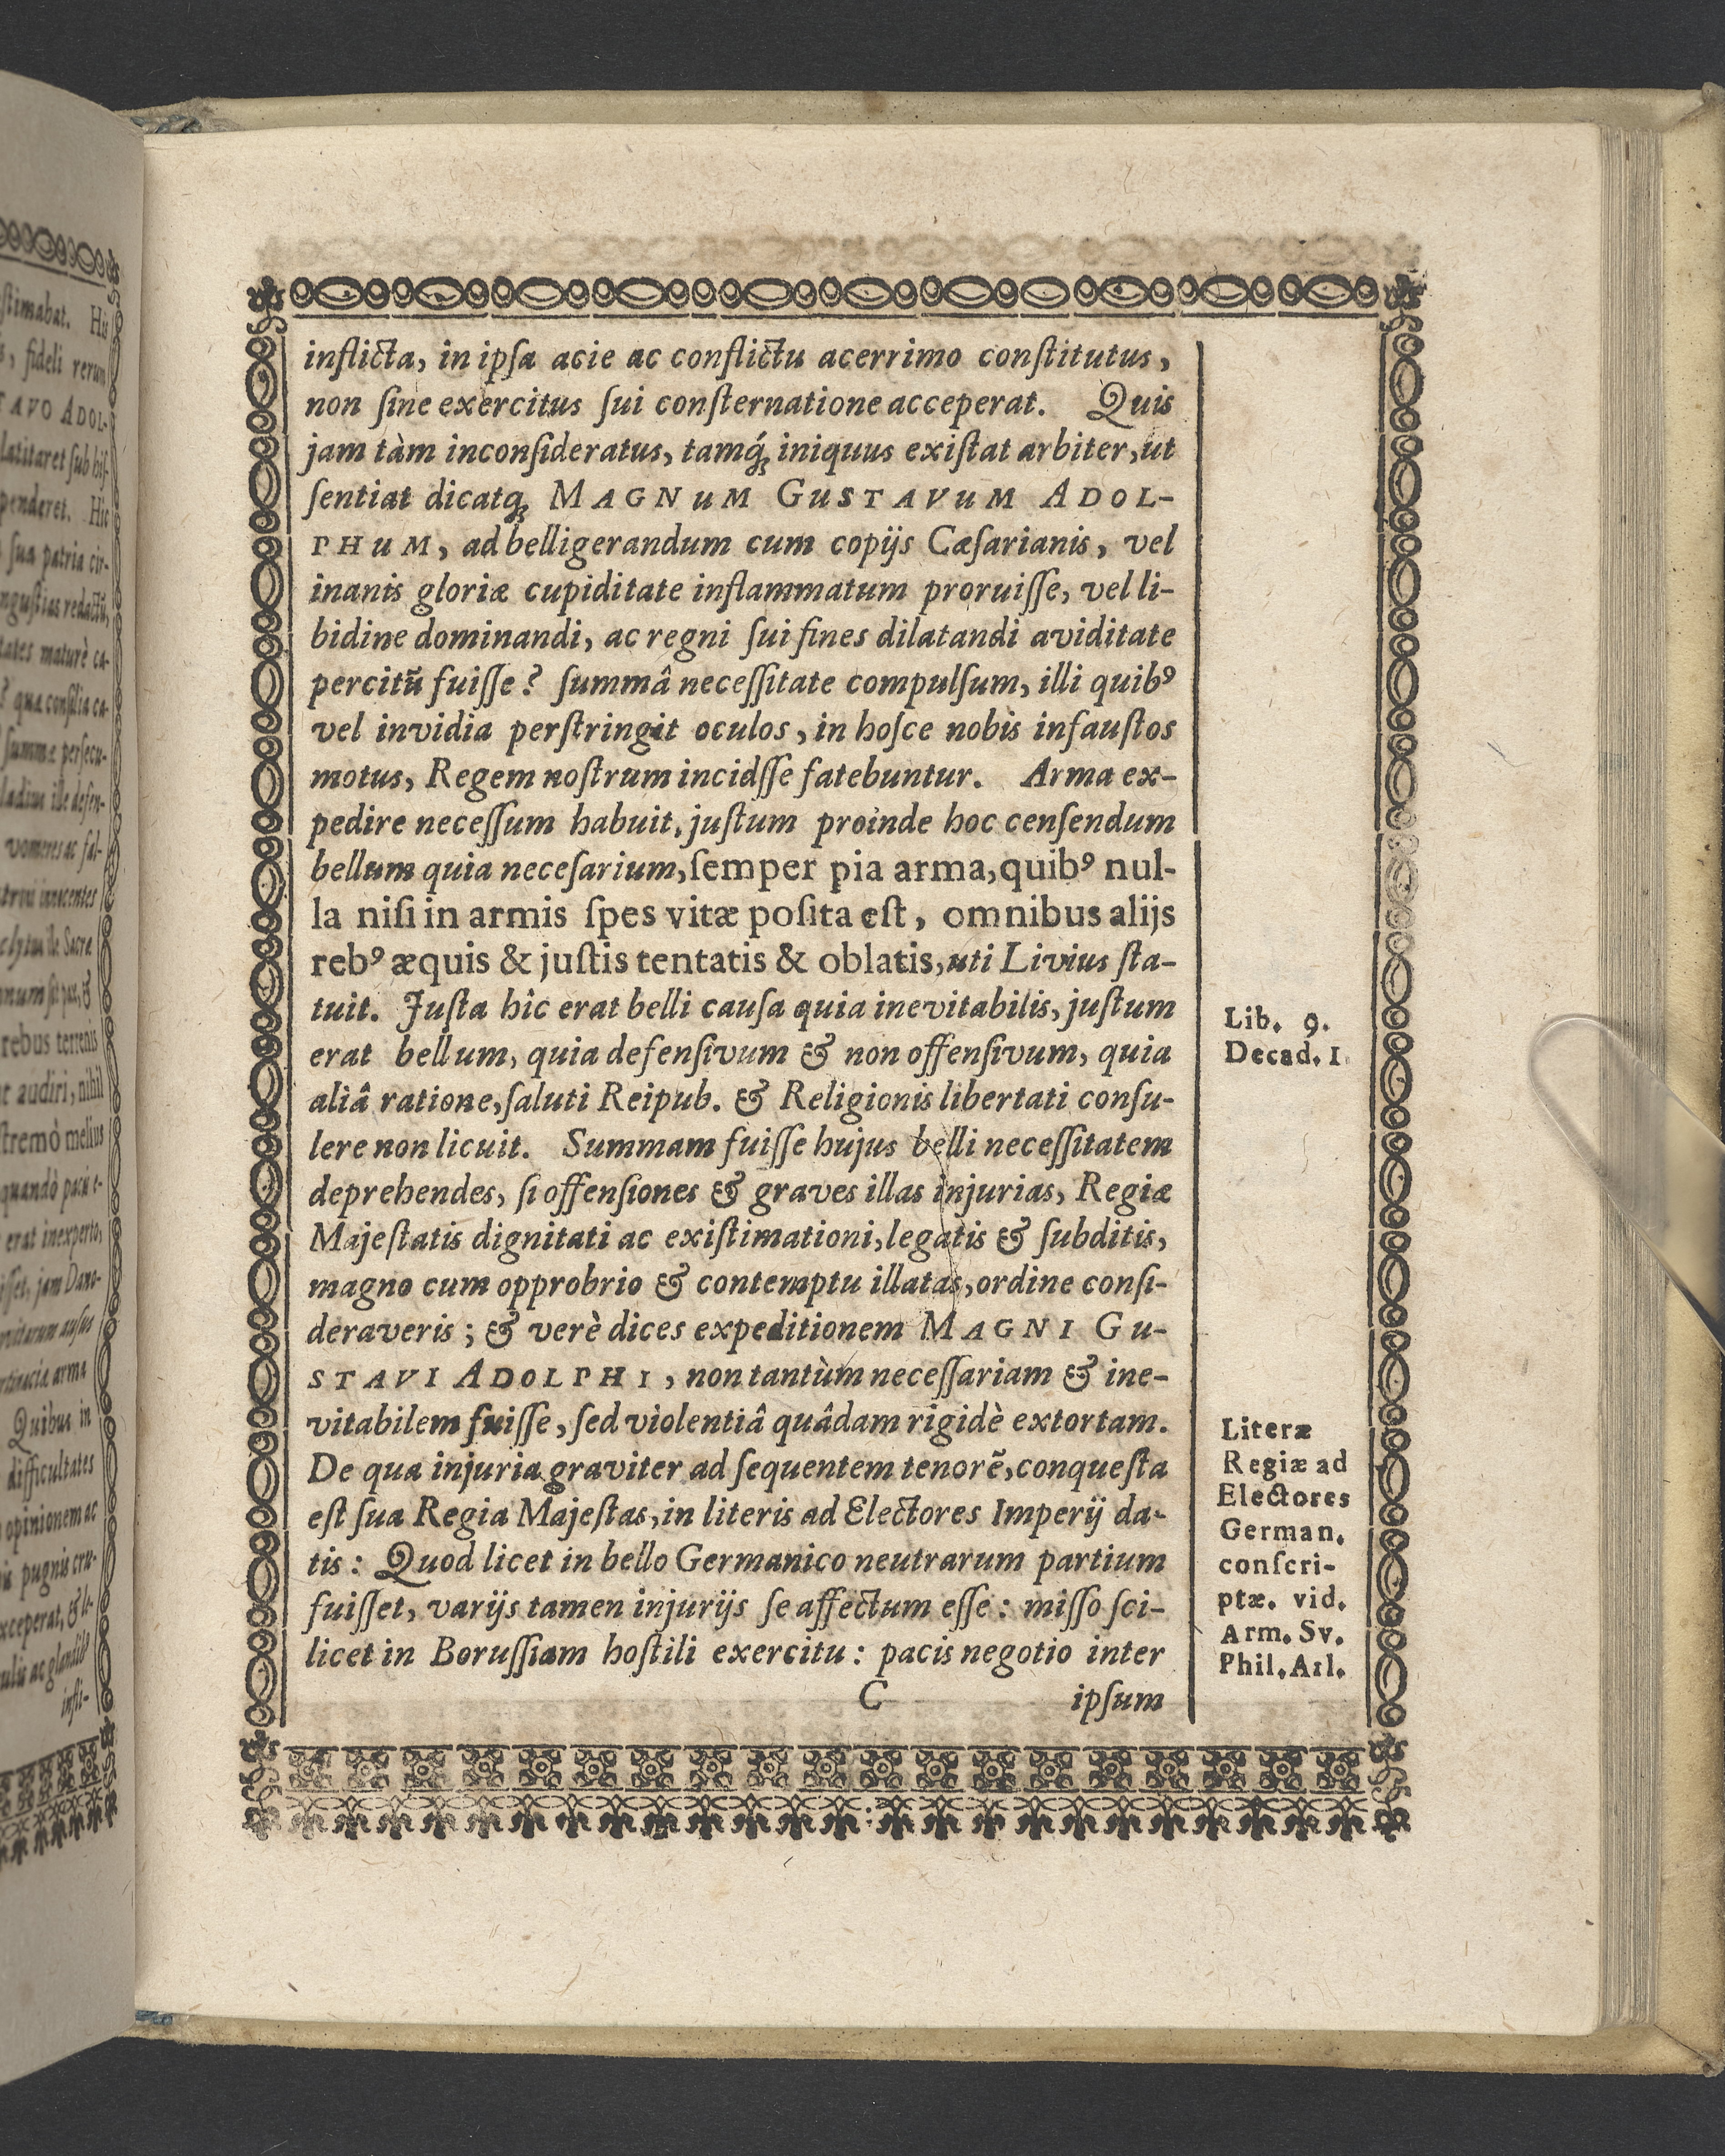 inflicta, in ipſa acie ac conflictu acerrimo conſtitutus,
non ſine exercitus ſui conſternatione acceperat. Quis
jam tàm inconſideratus, tamq́ꝫ iniquus exiſtat arbiter, ut
ſentiat dicatqꝫ MAGNuM GuSTAVuM ADOL-
PHuM, ad belligerandum cum copijs Cæſarianis, vel
inanis gloriæ cupiditate inflammatum proruiſſe, vel li-
bidine dominandi, ac regni ſui fines dilatandi aviditate
percitũ fuiſſe? ſummâ neceſſitate compulſum, illi quibꝰ
vel invidia perſtringit oculos, in hoſce nobis infauſtos
motus, Regem noſtrum incidſſe fatebuntur. Arma ex-
pedire neceſſum habuit, juſtum proinde hoc cenſendum
bellum quia neceſarium, ſemper pia arma, quibꝰ nul-
la niſi in armis ſpes vitæ poſita eſt, omnibus alijs
rebꝰ æquis & juſtis tentatis & oblatis, uti Livius ſta-
tuit. Juſta hîc erat belli cauſa quia inevitabilis, juſtum
erat bellum, quia defenſivum & non offenſivum, quia
aliâ ratione, ſaluti Reipub. & Religionis libertati conſu-
lere non licuit. Summam fuiſſe hujus belli neceſſitatem
deprehendes, ſi offenſiones & graves illas injurias, Regiæ
Majeſtatis dignitati ac exiſtimationi, legatis & ſubditis,
magno cum opprobrio & contemptu illatas, ordine conſi-
deraveris; & verè dices expeditionem MAGNI Gu-
STAVI ADOLPHI, non tantùm neceſſariam & ine-
vitabilem fuiſſe, ſed violentiâ quâdam rigidè extortam.
De qua injuria graviter ad ſequentem tenorẽ, conqueſta
eſt ſua Regia Majeſtas, in literis ad Electores Imperij da-
tis: Quod licet in bello Germanico neutrarum partium
fuiſſet, varijs tamen injurijs ſe affectum eſſe: miſſo ſci-
licet in Boruſſiam hoſtili exercitu: pacis negotio inter
C ipſum
Lib. 9.
Decad. 1
Literæ
Regiæ ad
Electores
German.
conſcri-
ptæ. vid.
Arm. Sv.
Phil. Arl.